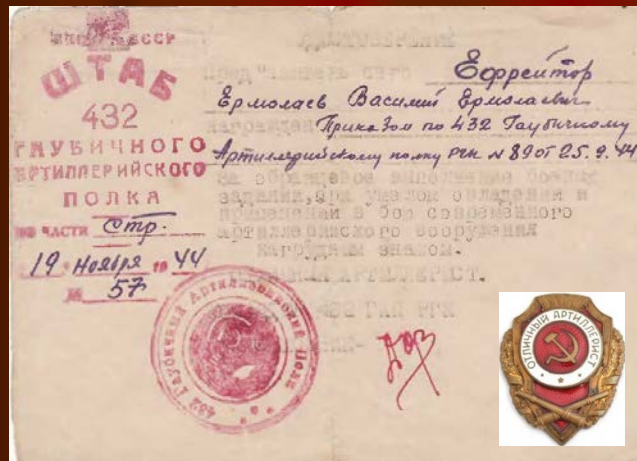 СССР
ШТАБ
432
ГАУБИЧНОГО
АРТИЛЛЕРИЙСКОГО
ПОЛКА
ЧАСТИ Стр.
19 Ноября 1944
№ 57
УДОСТОВЕРЕНИЕ
Ефрейтор
Ермолаев Василий Ермолаевич
награжден Приказом по 432 Гаубичному
Артиллерийскому полку РГК № 89 от 25.9.44
за образцовое выполнение боевых
заданий, при умелом овладении и
применении в бою современного
артиллерийского вооружения
нагрудным знаком.
АРТИЛЛЕРИСТ.
432 ГАП РГК
432 Гаубичный Артиллерийский Полк
ОТЛИЧНЫЙ АРТИЛЛЕРИСТ